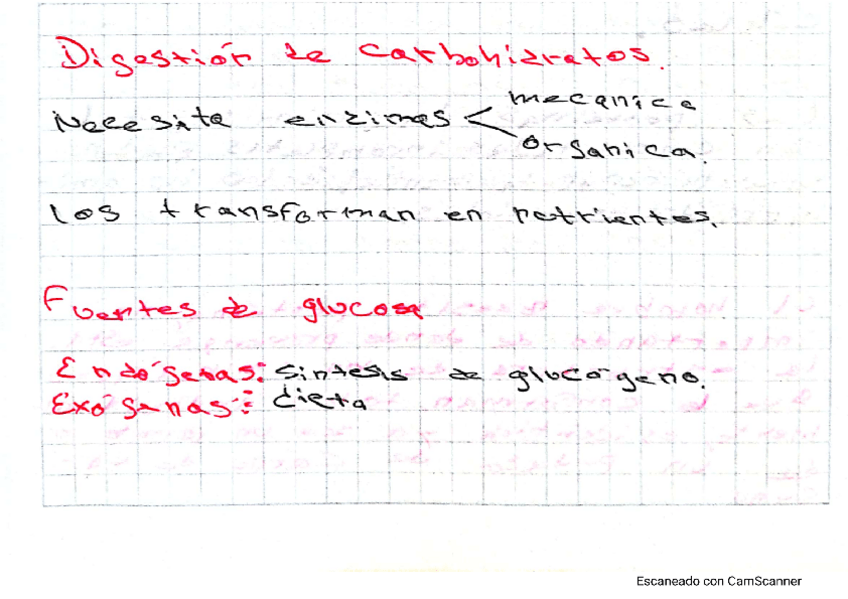 Digestión de carbohidratos.
Necesita enzimas < mecanica
organica.
los transforman en nutrientes.
Fuentes de glucosa
Endógenas: sintesis de glucógeno.
Exógenas: dieta
Escaneado con CamScanner